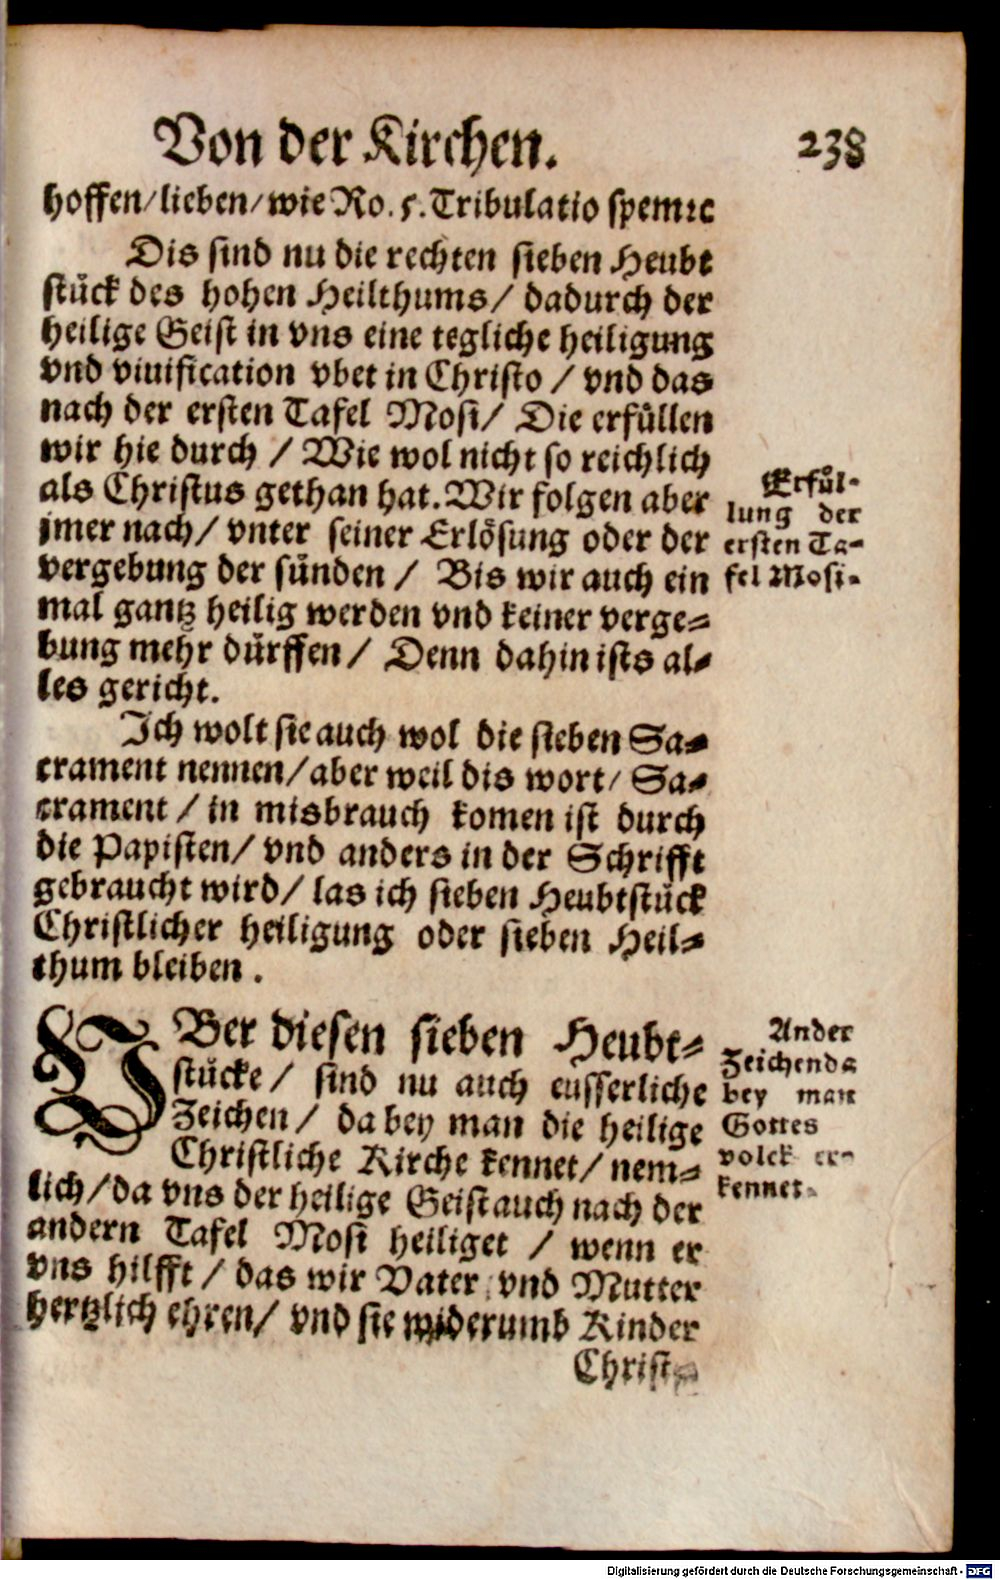 Von der Kirchen. 238
hoffen/lieben/wie Ro. 5. Tribulatio spem ꝛc
Dis sind nu die rechten sieben Heubt
stück des hohen Heilthums/ dadurch der
heilige Geist in vns eine tegliche heiligung
vnd viuification vbet in Christo / vnd das
nach der ersten Tafel Mosi/ Die erfüllen
wir hie durch / Wie wol nicht so reichlich
als Christus gethan hat. Wir folgen aber
jmer nach/ vnter seiner Erlösung oder der
vergebung der sünden / Bis wir auch ein
mal gantz heilig werden vnd keiner verge-
bung mehr dürffen/ Denn dahin ists al-
les gericht.
Erfül-
lung der
ersten Ta-
fel Mosi.
Ich wolt sie auch wol die sieben Sa-
crament nennen/ aber weil dis wort/ Sa-
crament / in misbrauch komen ist durch
die Papisten/ vnd anders in der Schrifft
gebraucht wird/ las ich sieben Heubtstück
Christlicher heiligung oder sieben Heil-
thum bleiben.
VBer diesen sieben Heubt-
stücke/ sind nu auch eusserliche
Zeichen/ da bey man die heilige
Christliche Kirche kennet/ nem-
lich/ da vns der heilige Geist auch nach der
andern Tafel Mosi heiliget / wenn er
vns hilfft / das wir Vater vnd Mutter
hertzlich ehren/ vnd sie widerumb Kinder
Christ-
Ander
Zeichen da
bey man
Gottes
volck er-
kennet.
Digitalisierung gefördert durch die Deutsche Forschungsgemeinschaft - DFG